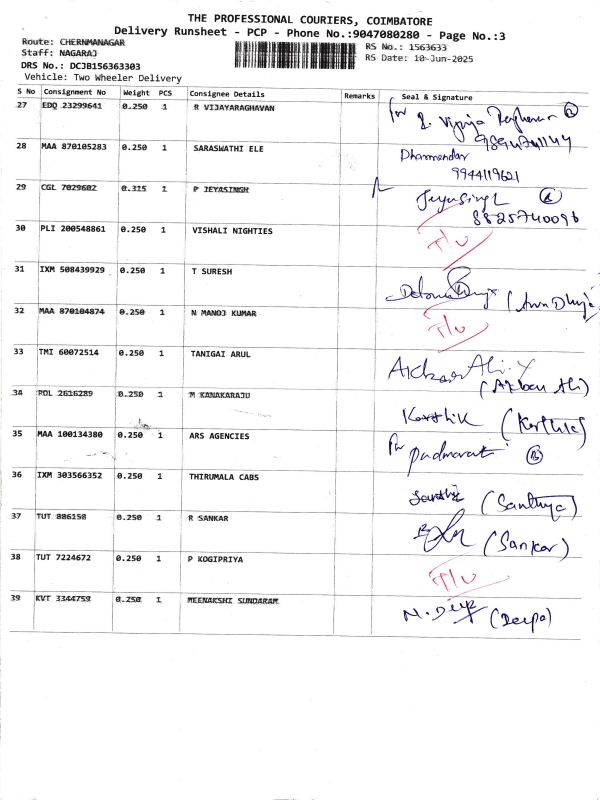 THE PROFESSIONAL COURIERS, COIMBATORE
Delivery Runsheet - PCP - Phone No.:9047080280 - Page No.:3
Route: CHERNMANAGAR
Staff: NAGARAJ
DRS No.: DCJB156363303
Vehicle: Two Wheeler Delivery
RS No.: 1563633
RS Date: 10-Jun-2025
S No Consignment No Weight PCS Consignee Details Remarks Seal & Signature
27 EDQ 23299641 0.250 1 R VIJAYARAGHAVAN
28 MAA 870105283 0.250 1 SARASWATHI ELE Dharmendar
9944119621
29 CGL 7029602 0.315 1 P JEYASINGH Jeyasingh
8825740096
30 PLI 200548861 0.250 1 VISHALI NIGHTIES T/U
31 IXM 508439929 0.250 1 T SURESH
32 MAA 870104874 0.250 1 N MANOJ KUMAR T/U
33 TMI 60072514 0.250 1 TANIGAI ARUL Akbar Ali
(Akbar Ali)
34 ROL 2616289 0.250 1 M KANAKARAJU Karthik (Karthik)
35 MAA 100134380 0.250 1 ARS AGENCIES
36 IXM 303566352 0.250 1 THIRUMALA CABS (Santhiya)
37 TUT 886158 0.250 1 R SANKAR (Sankar)
38 TUT 7224672 0.250 1 P KOGIPRIYA T/U
39 KVT 3344759 0.250 1 MEENAKSHI SUNDARAM (Deepa)